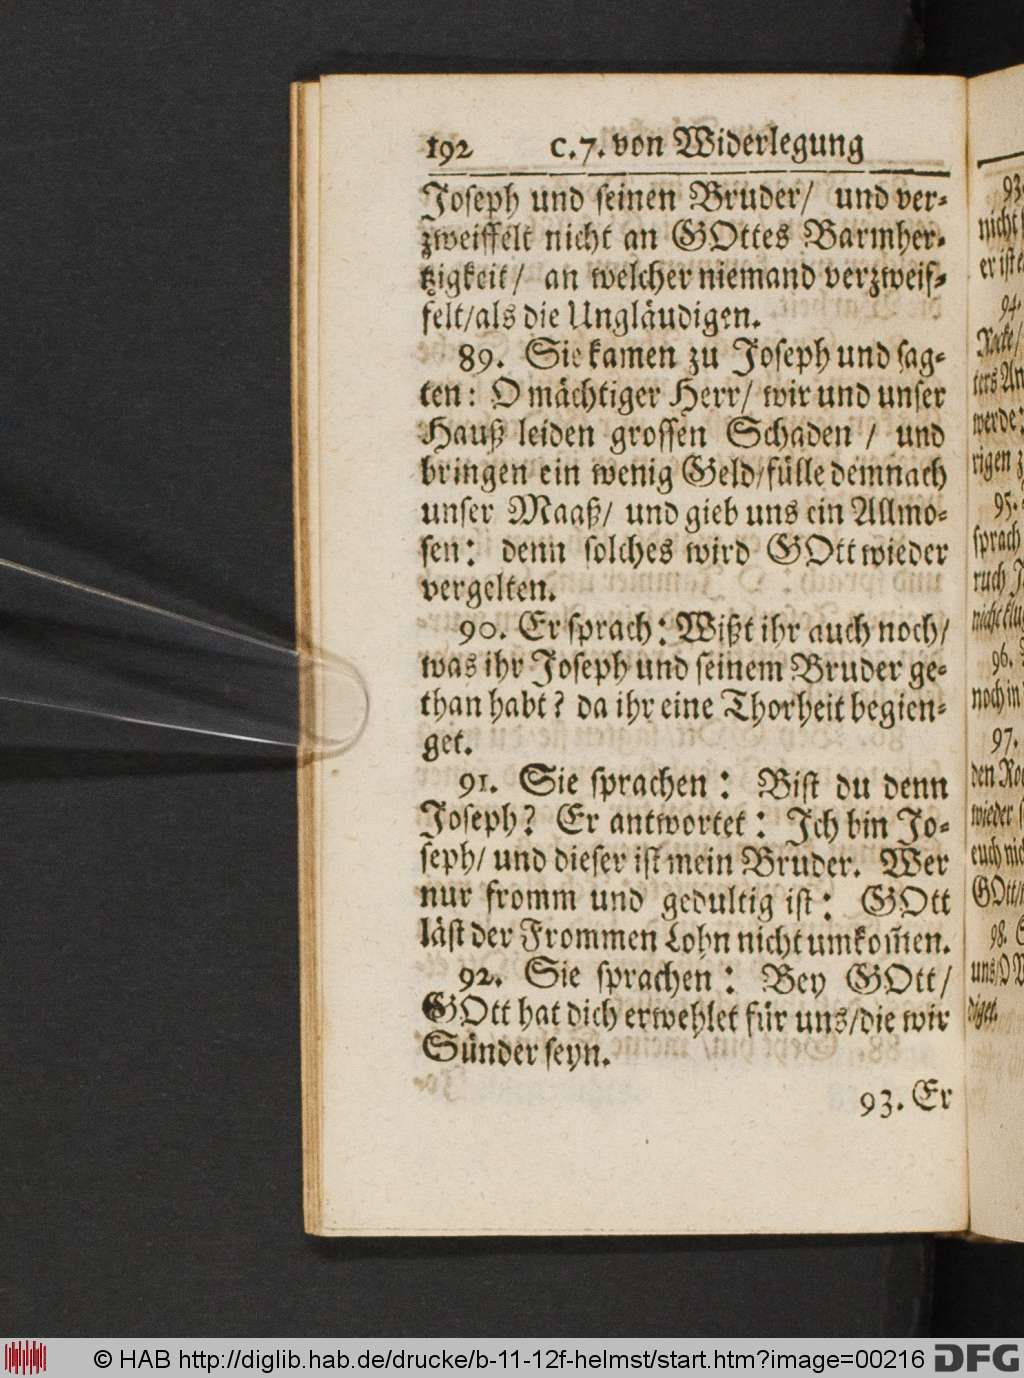 192 c.7. von Widerlegung
Joseph und seinen Bruder/ und ver-
zweiffelt nicht an GOttes Barmher-
tzigkeit/ an welcher niemand verzweif-
felt/als die Ungläudigen.
89. Sie kamen zu Joseph und sag-
ten: O mächtiger Herr/ wir und unser
Hauß leiden grossen Schaden / und
bringen ein wenig Geld/fülle demnach
unser Maaß/ und gieb uns ein Allmo-
sen: denn solches wird GOtt wieder
vergelten.
90. Er sprach: Wißt ihr auch noch/
was ihr Joseph und seinem Bruder ge-
than habt? da ihr eine Thorheit begien-
get.
91. Sie sprachen: Bist du denn
Joseph? Er antwortet: Ich bin Jo-
seph/ und dieser ist mein Bruder. Wer
nur fromm und gedultig ist: GOtt
läst der Frommen Lohn nicht umkom̃en.
92. Sie sprachen: Bey GOtt/
GOtt hat dich erwehlet für uns/die wir
Sünder seyn.
93. Er
93.
nicht
er ist
94.
Rocke/
ters An
werde:
rigen z
95.
sprach
ruch J
nicht klug
96.
noch in
97.
den Roc
wieder s
euch nic
GOtt/
98. S
uns/O V
diget.
© HAB http://diglib.hab.de/drucke/b-11-12f-helmst/start.htm?image=00216 DFG